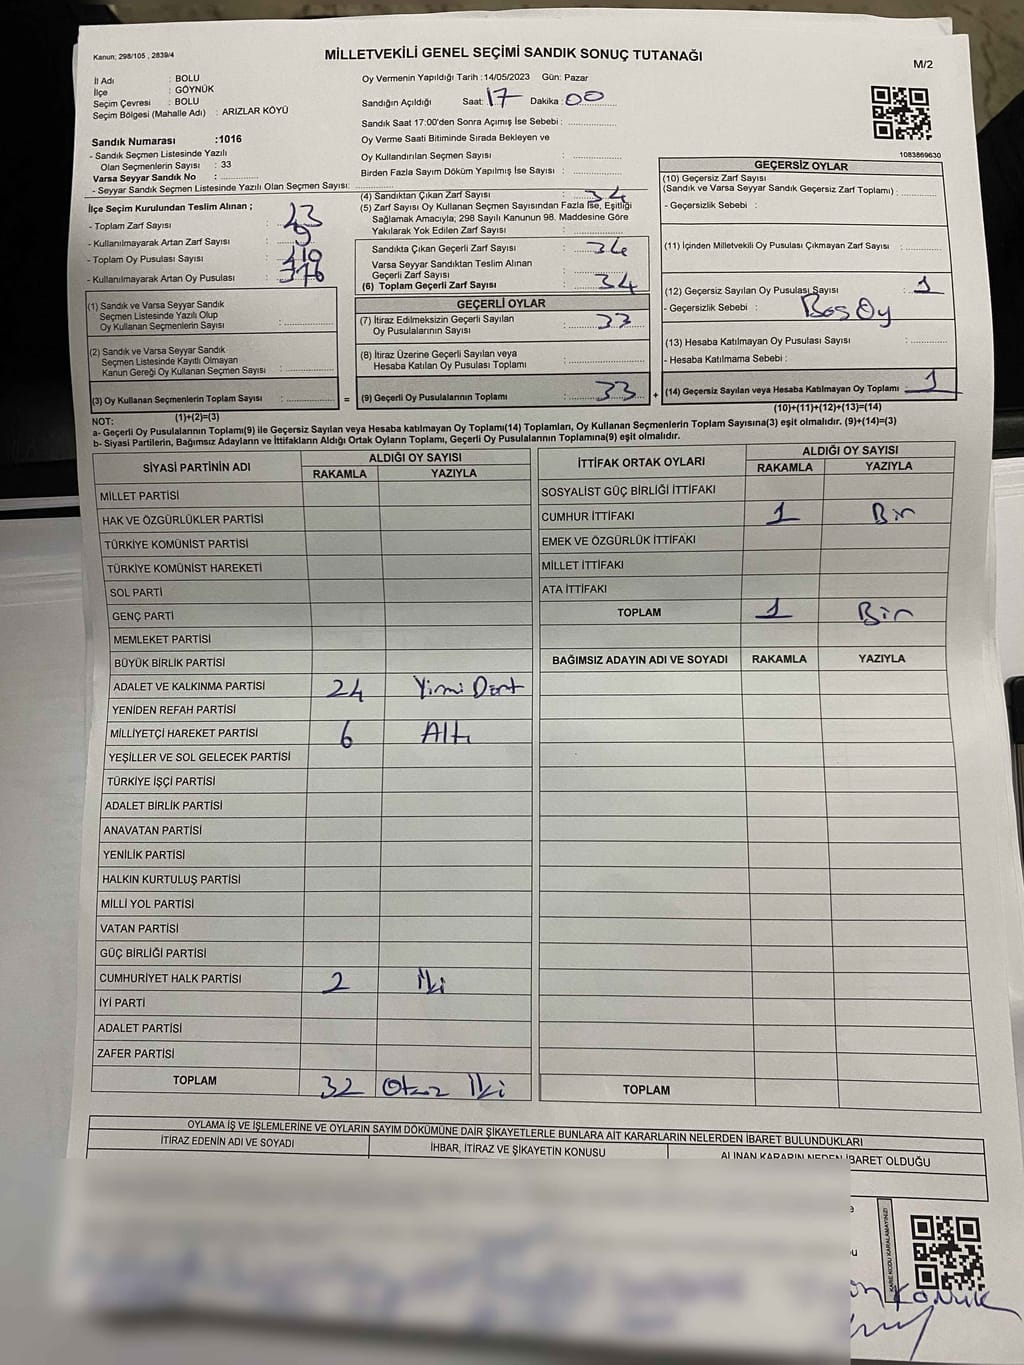 Kanun; 298/105 , 2839/4
MİLLETVEKİLİ GENEL SEÇİMİ SANDIK SONUÇ TUTANAĞI
M/2
İl Adı : BOLU
İlçe : GÖYNÜK
Seçim Çevresi : BOLU
Seçim Bölgesi (Mahalle Adı) : ARIZLAR KÖYÜ
Sandık Numarası :1016
- Sandık Seçmen Listesinde Yazılı
Olan Seçmenlerin Sayısı : 33
Varsa Seyyar Sandık No :
- Seyyar Sandık Seçmen Listesinde Yazılı Olan Seçmen Sayısı:
İlçe Seçim Kurulundan Teslim Alınan ;
- Toplam Zarf Sayısı : 43
- Kullanılmayarak Artan Zarf Sayısı : 9
- Toplam Oy Pusulası Sayısı :
- Kullanılmayarak Artan Oy Pusulası : 376
(1) Sandık ve Varsa Seyyar Sandık
Seçmen Listesinde Yazılı Olup
Oy Kullanan Seçmenlerin Sayısı :
(2) Sandık ve Varsa Seyyar Sandık
Seçmen Listesinde Kayıtlı Olmayan
Kanun Gereği Oy Kullanan Seçmen Sayısı :
(3) Oy Kullanan Seçmenlerin Toplam Sayısı : =
(1)+(2)=(3)
Oy Vermenin Yapıldığı Tarih :14/05/2023 Gün: Pazar
Sandığın Açıldığı Saat: 17 Dakika : 00
Sandık Saat 17:00'den Sonra Açımış İse Sebebi :
Oy Verme Saati Bitiminde Sırada Bekleyen ve
Oy Kullandırılan Seçmen Sayısı :
Birden Fazla Sayım Döküm Yapılmış İse Sayısı :
(4) Sandıktan Çıkan Zarf Sayısı : 34
(5) Zarf Sayısı Oy Kullanan Seçmen Sayısından Fazla İse, Eşitliği
Sağlamak Amacıyla; 298 Sayılı Kanunun 98. Maddesine Göre
Yakılarak Yok Edilen Zarf Sayısı :
Sandıkta Çıkan Geçerli Zarf Sayısı : 34
Varsa Seyyar Sandıktan Teslim Alınan
Geçerli Zarf Sayısı :
(6) Toplam Geçerli Zarf Sayısı : 34
GEÇERLİ OYLAR
(7) İtiraz Edilmeksizin Geçerli Sayılan
Oy Pusulalarının Sayısı : 33
(8) İtiraz Üzerine Geçerli Sayılan veya
Hesaba Katılan Oy Pusulası Toplamı :
(9) Geçerli Oy Pusulalarının Toplamı : 33 +
1083869630
GEÇERSİZ OYLAR
(10) Geçersiz Zarf Sayısı
(Sandık ve Varsa Seyyar Sandık Geçersiz Zarf Toplamı) :
- Geçersizlik Sebebi :
(11) İçinden Milletvekili Oy Pusulası Çıkmayan Zarf Sayısı :
(12) Geçersiz Sayılan Oy Pusulası Sayısı : 1
- Geçersizlik Sebebi : Boş Oy
(13) Hesaba Katılmayan Oy Pusulası Sayısı :
- Hesaba Katılmama Sebebi :
(14) Geçersiz Sayılan veya Hesaba Katılmayan Oy Toplamı : 1
(10)+(11)+(12)+(13)=(14)
NOT:
a- Geçerli Oy Pusulalarının Toplamı(9) ile Geçersiz Sayılan veya Hesaba katılmayan Oy Toplamı(14) Toplamları, Oy Kullanan Seçmenlerin Toplam Sayısına(3) eşit olmalıdır. (9)+(14)=(3)
b- Siyasi Partilerin, Bağımsız Adayların ve İttifakların Aldığı Ortak Oyların Toplamı, Geçerli Oy Pusulalarının Toplamına(9) eşit olmalıdır.
SİYASİ PARTİNİN ADI ALDIĞI OY SAYISI
RAKAMLA YAZIYLA
MİLLET PARTİSİ
HAK VE ÖZGÜRLÜKLER PARTİSİ
TÜRKİYE KOMÜNİST PARTİSİ
TÜRKİYE KOMÜNİST HAREKETİ
SOL PARTİ
GENÇ PARTİ
MEMLEKET PARTİSİ
BÜYÜK BİRLİK PARTİSİ
ADALET VE KALKINMA PARTİSİ 24 Yirmi Dört
YENİDEN REFAH PARTİSİ
MİLLİYETÇİ HAREKET PARTİSİ 6 Altı
YEŞİLLER VE SOL GELECEK PARTİSİ
TÜRKİYE İŞÇİ PARTİSİ
ADALET BİRLİK PARTİSİ
ANAVATAN PARTİSİ
YENİLİK PARTİSİ
HALKIN KURTULUŞ PARTİSİ
MİLLİ YOL PARTİSİ
VATAN PARTİSİ
GÜÇ BİRLİĞİ PARTİSİ
CUMHURİYET HALK PARTİSİ 2 İki
İYİ PARTİ
ADALET PARTİSİ
ZAFER PARTİSİ
TOPLAM 32 Otuz İki
İTTİFAK ORTAK OYLARI ALDIĞI OY SAYISI
RAKAMLA YAZIYLA
SOSYALİST GÜÇ BİRLİĞİ İTTİFAKI
CUMHUR İTTİFAKI 1 Bir
EMEK VE ÖZGÜRLÜK İTTİFAKI
MİLLET İTTİFAKI
ATA İTTİFAKI
TOPLAM 1 Bir
BAĞIMSIZ ADAYIN ADI VE SOYADI RAKAMLA YAZIYLA
TOPLAM
OYLAMA İŞ VE İŞLEMLERİNE VE OYLARIN SAYIM DÖKÜMÜNE DAİR ŞİKAYETLERLE BUNLARA AİT KARARLARIN NELERDEN İBARET BULUNDUKLARI
İTİRAZ EDENİN ADI VE SOYADI İHBAR, İTİRAZ VE ŞİKAYETİN KONUSU ALINAN KARARIN NEDEN İBARET OLDUĞU
KARE KODU KARALAMAYINIZ!
KONUK